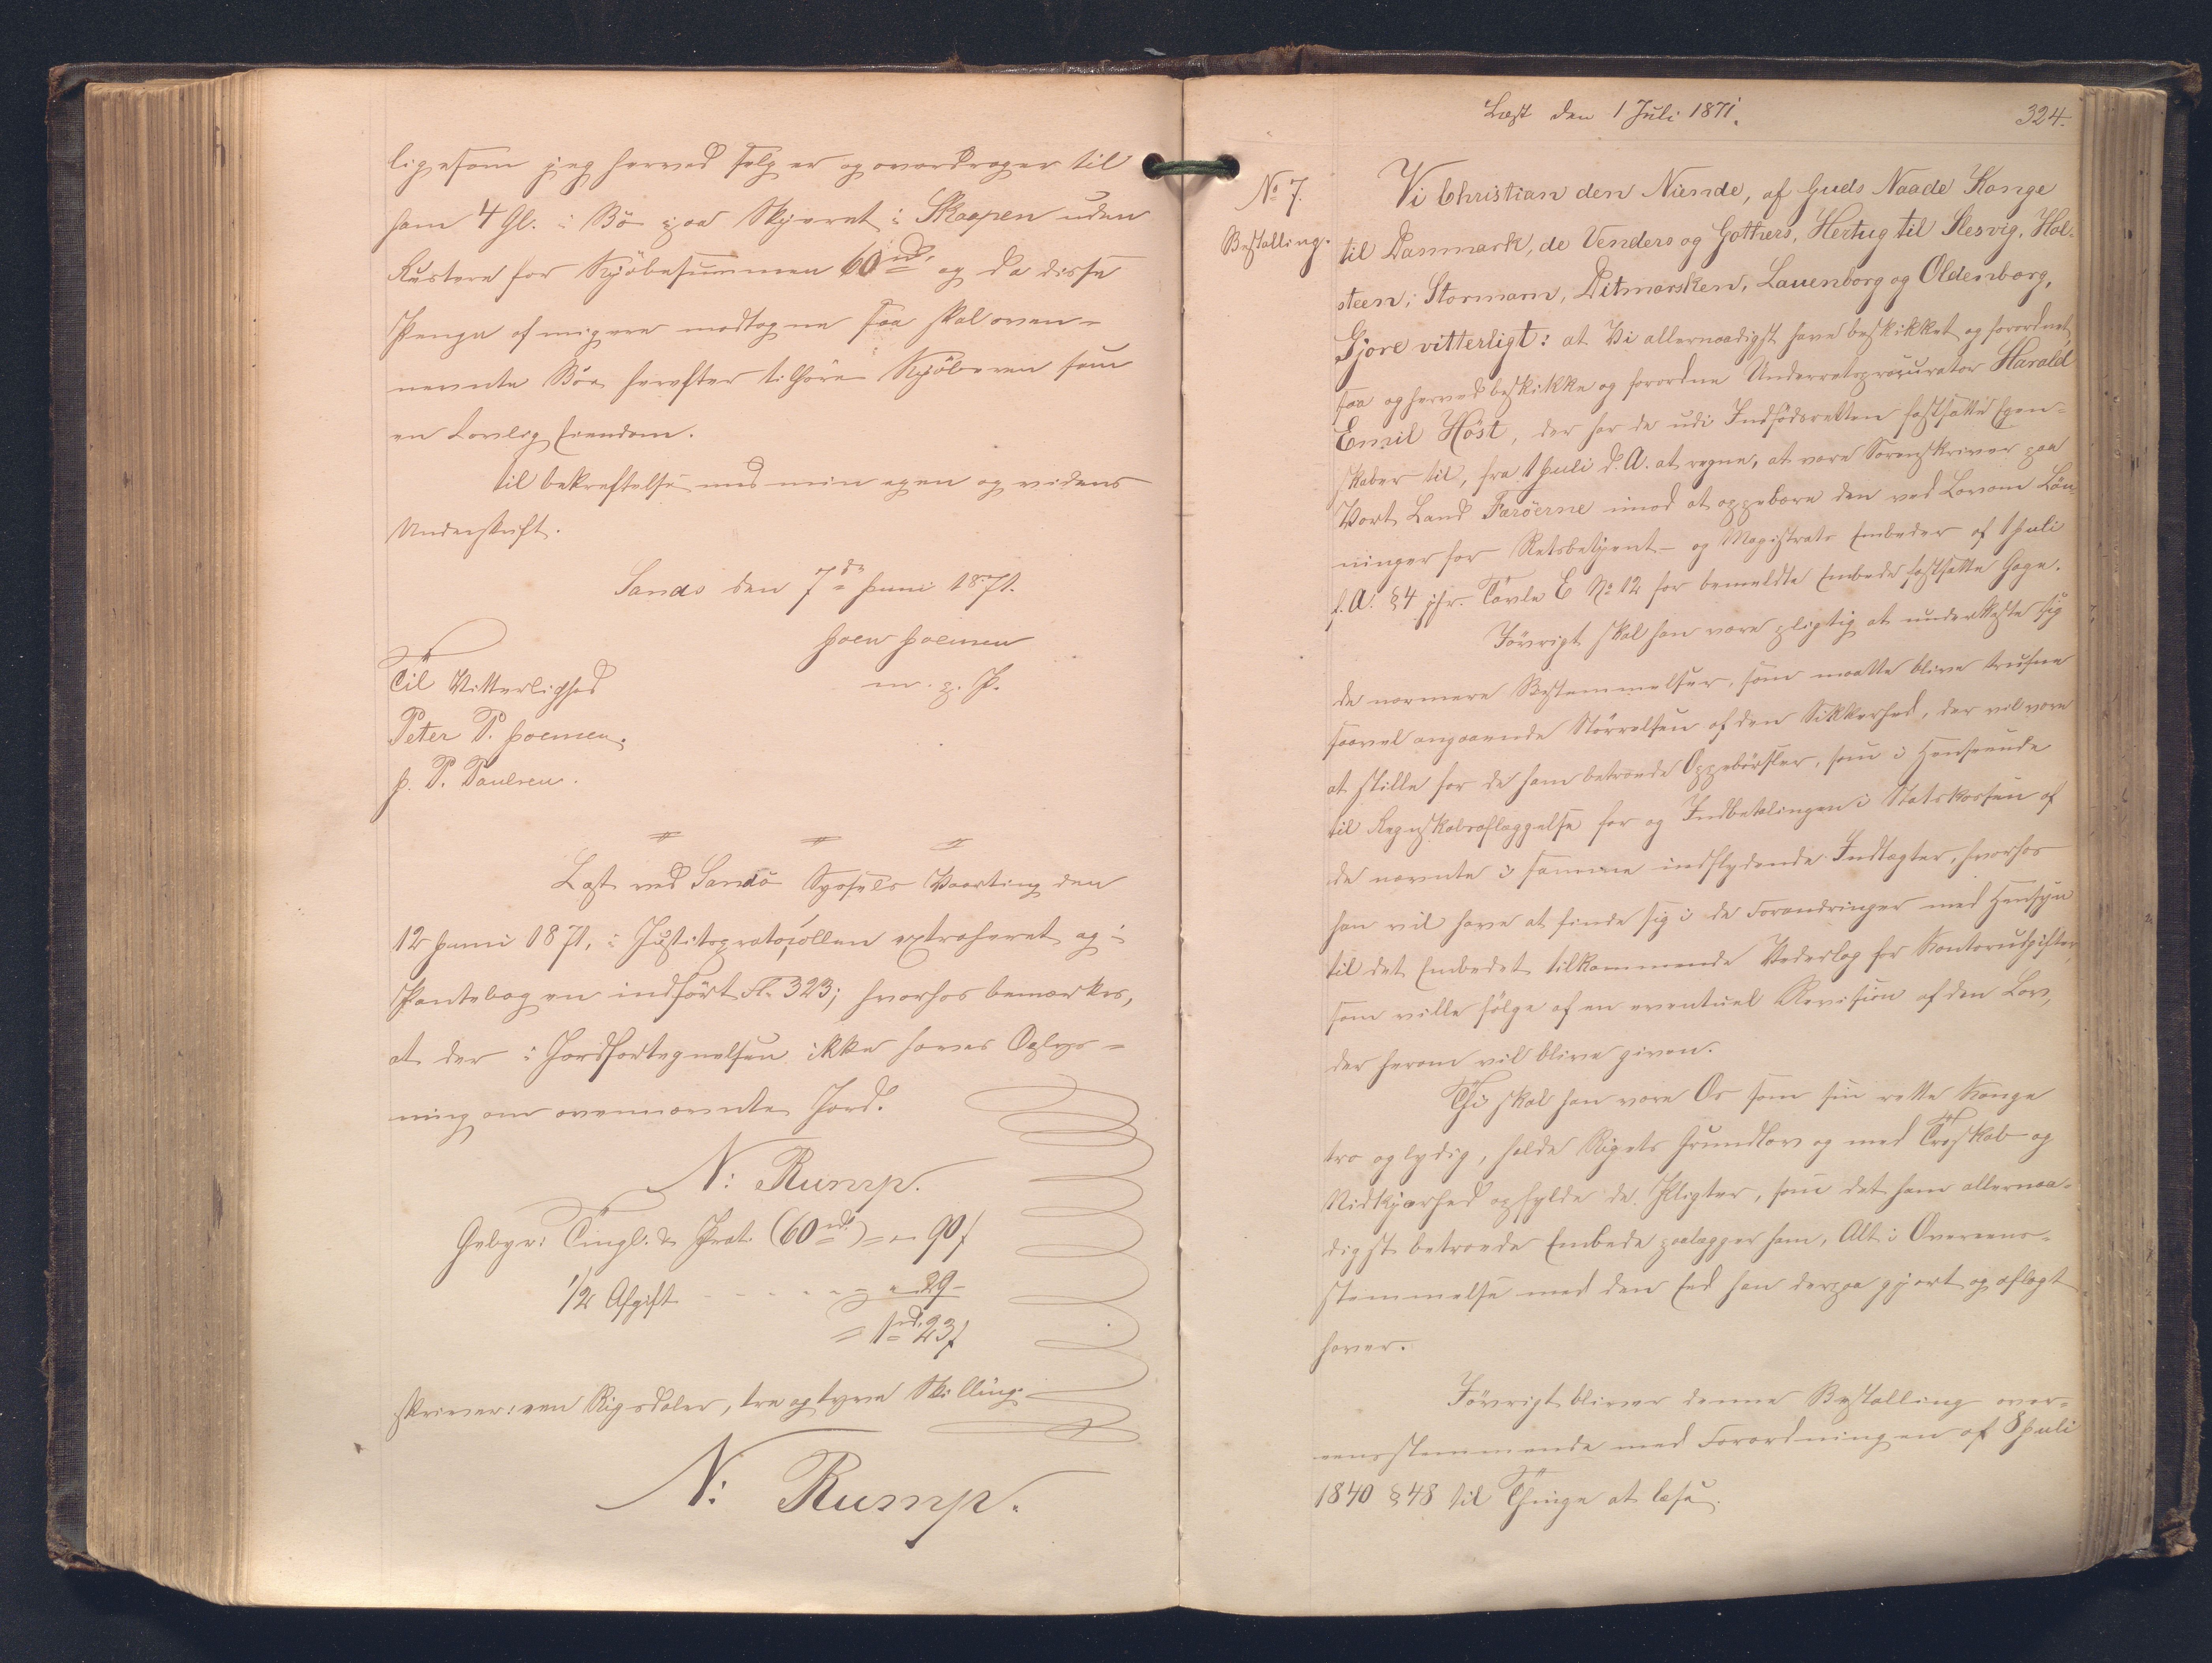 ligesom jeg herved sælger og overdrager til
ham 4 Gl. i Bö paa Skjernet i Skaapen uden
for Kjöbesummen 60 rd. og da disse
Penge af mig ere modtagne saa skal oven-
nevnte Böe herefter tilhöre Kjöberen som
en Lovlig Eiendom.
til bekreftelse med min egen og videns
Underskrift.
Sands den 7de Juni 1871.
Joen Joensen
m. p. P.
Til Vitterlighed
Peter P. Joensen.
J. P. Paulsen.
Læst ved Sandö Syssels Vaarting den
12 Juni 1871, i Justitsprotocollen extraheret og i
Pantebogen indfört Fl. 323; hvorhos bemærkes,
at der i Jordfortegnelsen ikke haves Oplys-
ning om ovennævnte Jord.
N: Rump.
Gebyr: Tingl. & Prot. (60 rd.) = - 90 s
1/2 Afgift - - - - - 29 -
= 1 rd. 23 s
skriver: een Rigsdaler, tre og tyve Skilling.
N: Rump.
Læst den 1 Juli 1871.
324.
No 7.
Bestalling.
Vi Christian den Niende, af Guds Naade Konge
til Danmark, de Venders og Gothers, Hertug til Slesvig, Hol-
steen, Stormarn, Ditmarsken, Lauenborg og Oldenborg,
Gjøre vitterligt: at Vi allernaadigst have beskikket og forordnet
saa og herved beskikke og forordne Underretsprocurator Harald
Emil Höst, der har de udi Indfödsretten fastsatte Egen-
skaber til, fra 1 Juli d. A. at regne, at være Sorenskriver paa
Vort Land Færöerne imod at oppebære den ved Lovom Lön-
ninger for Retsbetjent- og Magistrats Embeder af 1 Juli
f. A. § 4 jfr. Tavle E No 12 for bemeldte Embede fastsatte Gage.
Iövrigt skal han være pligtig at underkaste sig
de nærmere Bestemmelser, som maatte blive trufne
saavel angaaende Störrelsen af den Sikkerhed, der vil være
at stille for de ham betroede Oppebörsler, som i Henseende
til Regnskabsaflæggelse for og Indbetalingen i Statskassen af
de nævnte i samme indflydende Indtægter, hvorhos
han vil have at finde sig i de Forandringer med Hensyn
til det Embedet tilkommende Vederlag for Kontorudgifter,
som ville fölge af en eventuel Revision af den Lov,
der herom vil blive given.
Thi skal han være Os som sin rette Konge
tro og lydig, holde Rigets Grundlov og med Troskab og
Nidkjærhed opfylde de Pligter, som det ham allernaa-
digst betroede Embede paalægger ham, Alt i Overeens-
stemmelse med den Eed han derpaa gjort og aflagt
haver.
Iövrigt bliver denne Bestalling over-
eensstemmende med Forordningen af 8 Juli
1840 § 48 til Thinge at læse.